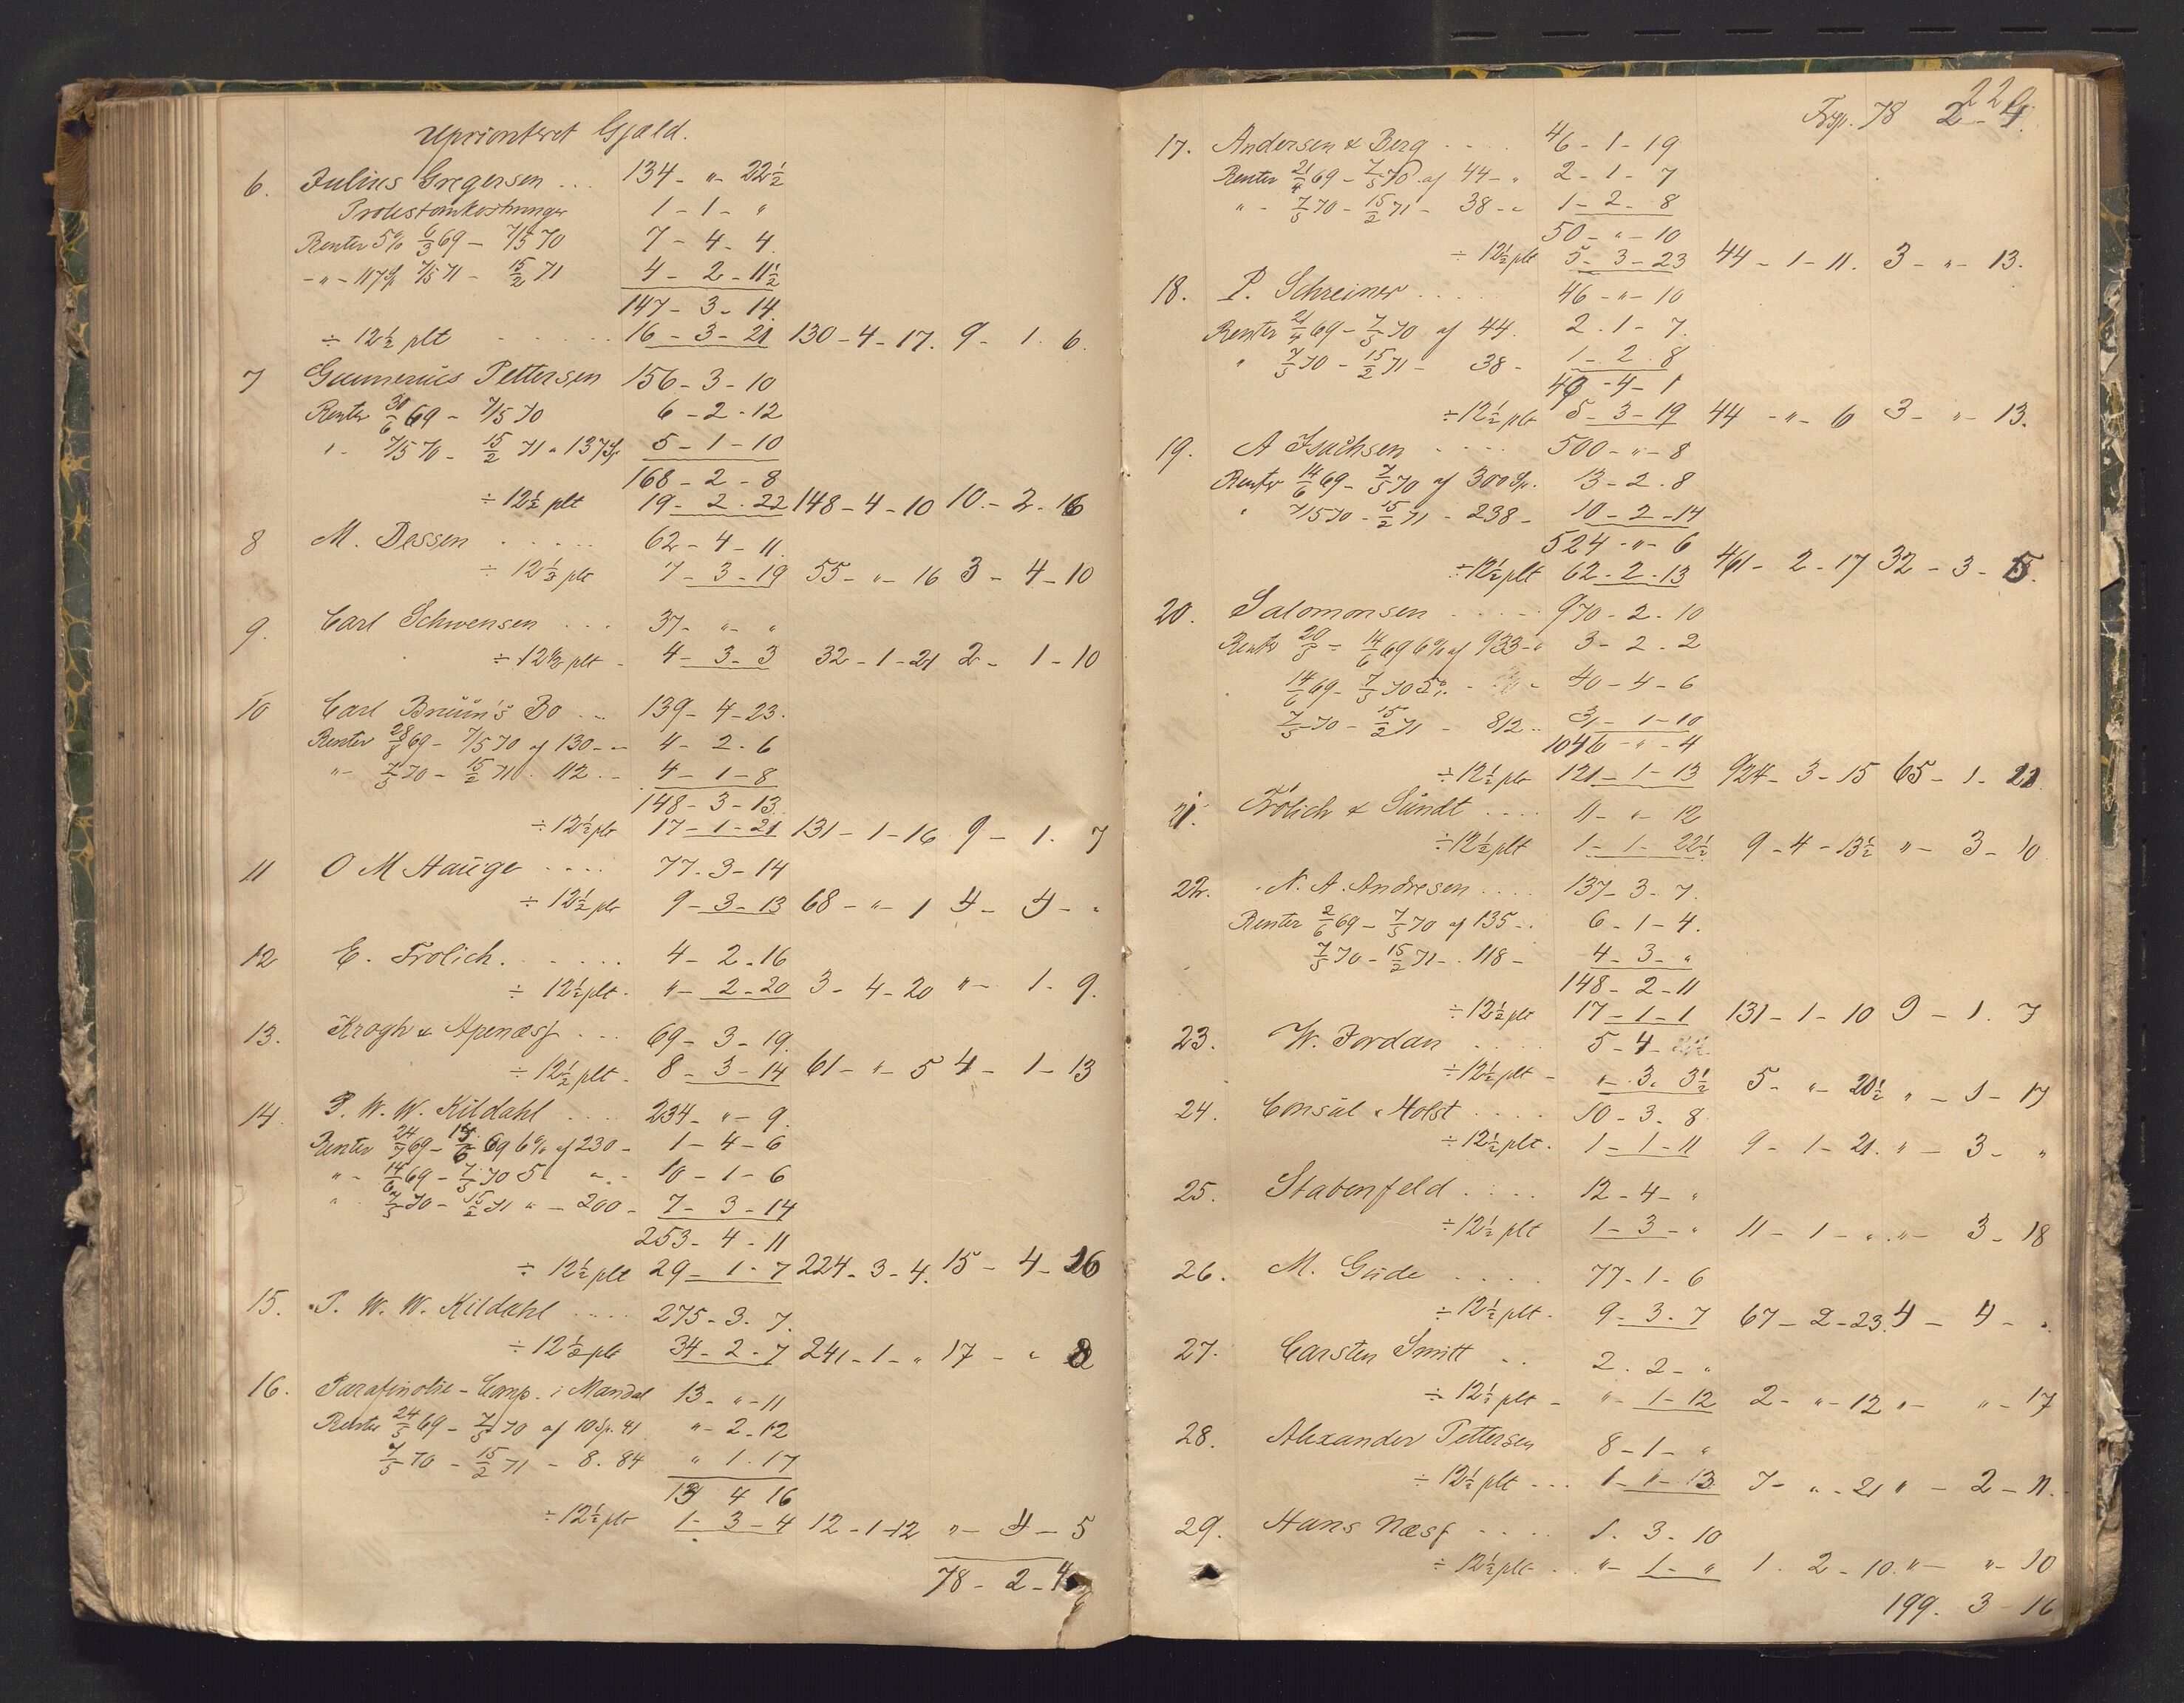 Uprioriteret Gjæld.
6. Julius Gregersen ... 134 - " - 22½
Protestomkostninger 1 - 1 - "
Renter 5% 6/3 69 - 7/5 70 7 - 4 - 4
- " - 117 Sp 7/5 71 - 15/2 71 4 - 2 - 11½
147 - 3 - 14.
÷ 12½ plt ..... 16 - 3 - 21 130 - 4 - 17. 9 - 1. 6.
7 Gunnerius Pettersen 156 - 3 - 10
Renter 30/6 69 - 7/5 70 6 - 2 - 12
" - 7/5 70 - 15/2 71 " 137 Sp 5 - 1 - 10
168 - 2 - 8
÷ 12½ plt 19 - 2 - 22 148 - 4 - 10 10 - 2 - 16
8 M. Dessen ..... 62 - 4 - 11.
÷ 12½ plt 7 - 3 - 19 55 - " - 16 3 - 4 - 10
9. Carl Schwensen ... 37 - " - "
÷ 12½ plt - 4 - 3 - 3 32 - 1 - 21 2 - 1 - 10
10 Carl Bruun's Bo ... 139 - 4 - 23.
Renter 28/8 69 - 7/5 70 af 130 - " 4 - 2 - 6
" - 7/5 70 - 15/2 71 112 . - 4 - 1 - 8
148 - 3 - 13.
÷ 12½ plt 17 - 1 - 21 131 - 1 - 16 9 - 1. 7
11 O M Hauge .... 77. 3 - 14
÷ 12½ plt 9 - 3 - 13 68 - " - 1 4 - 4 - "
12 E. Frolich ...... 4 - 2 - 16
÷ 12½ plt. " - 2 - 20 3 - 4 - 20 " - 1 - 9.
13. Krogh & Apenæss ... 69 - 3 - 19.
÷ 12½ plt - 8 - 3 - 14 61 - " - 5 4 - 1 - 13
14. P. W. W. Kildahl .... 234 - " - 9.
Renter 24/4 69 - 14/6 69 6% af 230 - 1 - 4 - 6
" - 14/6 69 - 7/5 70 5 " - 10 - 1 - 6
" 7/5 70 - 15/2 71 " - 200 - 7 - 3 - 14
253 - 4 - 11
÷ 12½ plt 29 - 1 - 7 224 - 3 - 4. 15 - 4 - 16
15. P. W. W. Kildahl .... 275 - 3. 7.
÷ 12½ plt 34 - 2 - 7 241 - 1 - " 17 - " 8
16. Parafinolie - Comp. i Mandal 13 - " - 11
Renter 24/5 69 - 7/5 70 af 10 Sp. 41 " - 2 - 12
7/5 70 - 15/2 71 - 8. 84 " 1. 17
13 4 16
÷ 12½ plt 1 - 3 - 4 12 - 1 - 12 " - 4 - 5
78 - 2 - 4
229
Trsp. 78 2 - 4.
17. Andersen & Berg .... 46 - 1 - 19
Renter 21/4 69 - 7/5 70 af 44 - " 2 - 1 - 7
" - 7/5 70 - 15/2 71 - 38 - " 1 - 2 - 8
50 - " - 10
÷ 12½ plt 5 - 3 - 23 44 - 1 - 11. 3 - " - 13.
18. P. Schreiner ..... 46 - " - 10
Renter 21/4 69 - 7/5 70 af 44. 2. 1 - 7.
" 7/5 70 - 15/2 71 - 38 - 1 - 2. 8
49 - 4 - 1
÷ 12½ plt 5 - 3 - 19 44 - " - 6 3 - " - 13.
19. A Isachsen .... 500 - " - 8
Renter 14/6 69 - 7/5 70 af 300 Sp. 13 - 2. 8
" 7/5 70 - 15/2 71 - 238 - 10 - 2 - 14
524 - " - 6
÷ 12½ plt 62 - 2 - 13 461 - 2 - 17 32 - 3 - 5.
20. Salomonsen ..... 970 - 2 - 10
Renter 20/5 - 14/6 69 6% af 933 - " 3 - 2 - 2
14/6 69 - 7/5 70 5% - " - 40 - 4 - 6
7/5 70 - 15/2 71 - 812 .. 31 - 1 - 10
1046 - " - 4
÷ 12½ plt 121 - 1 - 13 924 - 3 - 15 65 - 1 - 21
21. Frölich & Sundt .... 11 - " - 12
÷ 12½ plt 1 - 1 - 22½ 9 - 4 - 13½ " - 3 - 10
22. N. A. Andresen .... 137 - 3 - 7.
Renter 2/6 69 - 7/5 70 af 135 - . 6 - 1 - 4.
7/5 70 - 15/2 71 - . 118 - 4 - 3 - "
148 - 2 - 11
÷ 12½ plt 17 - 1 - 1 131 - 1 - 10 9 - 1. 7
23. W. Jordan .... 5 - 4 -
÷ 12½ plt - " - 3. 3½ 5 - " - 20½ " - 1 - 17
24. Consul Holst .... 10 - 3. 8
÷ 12½ plt. 1 - 1 - 11 9 - 1 - 21. " - 3 - "
25. Stabenfeld .... 12 - 4 - "
÷ 12½ plt 1 - 3 - " 11 - 1 - " . " - 3 - 18
26. M. Gude .... 77 - 1 - 6
÷ 12½ plt. 9 - 3 - 7 67 - 2 - 23. 4 - 4 - "
27. Carsten Smitt .. 2. 2 - "
÷ 12½ plt - " - 1 - 12 2 - " - 12 " - " - 17
28. Alexander Pettersen 8 - 1 - "
÷ 12½ plt ... 1 - " - 13 7 - " - 21 " - 2 - 11.
29. Hans Næss .... 1. 3 - 10
÷ 12½ plt .. " - 1 - " 1. 2 - 10. " - " - 10
199. 3 - 16